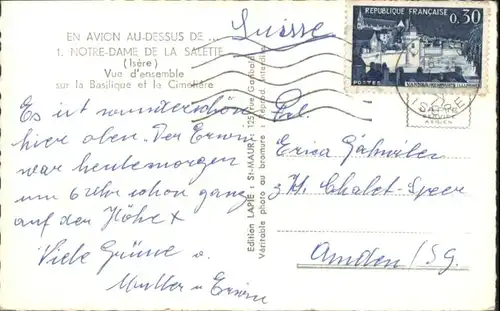 EN AVION AU-DESSUS DE ...
1. NOTRE-DAME DE LA SALETTE
(Isère)
Vue d'ensemble
sur la Basilique et la Cimetière
Es ist wunderschön
hier oben. Der Erwin
war heutemorgen
um 6 Uhr schon ganz
auf der Höhe
Viele Grüsse v.
Mutter u Erwin
Edition LAPIE : St-MAUR, 125
Véritable photo au bromure : Reprod. interdite
Suisse
RÉPUBLIQUE FRANÇAISE
0,30
POSTES
ISÈRE
Frl.
Erica
z. H. Chalet-Speer
Amden / Sg.